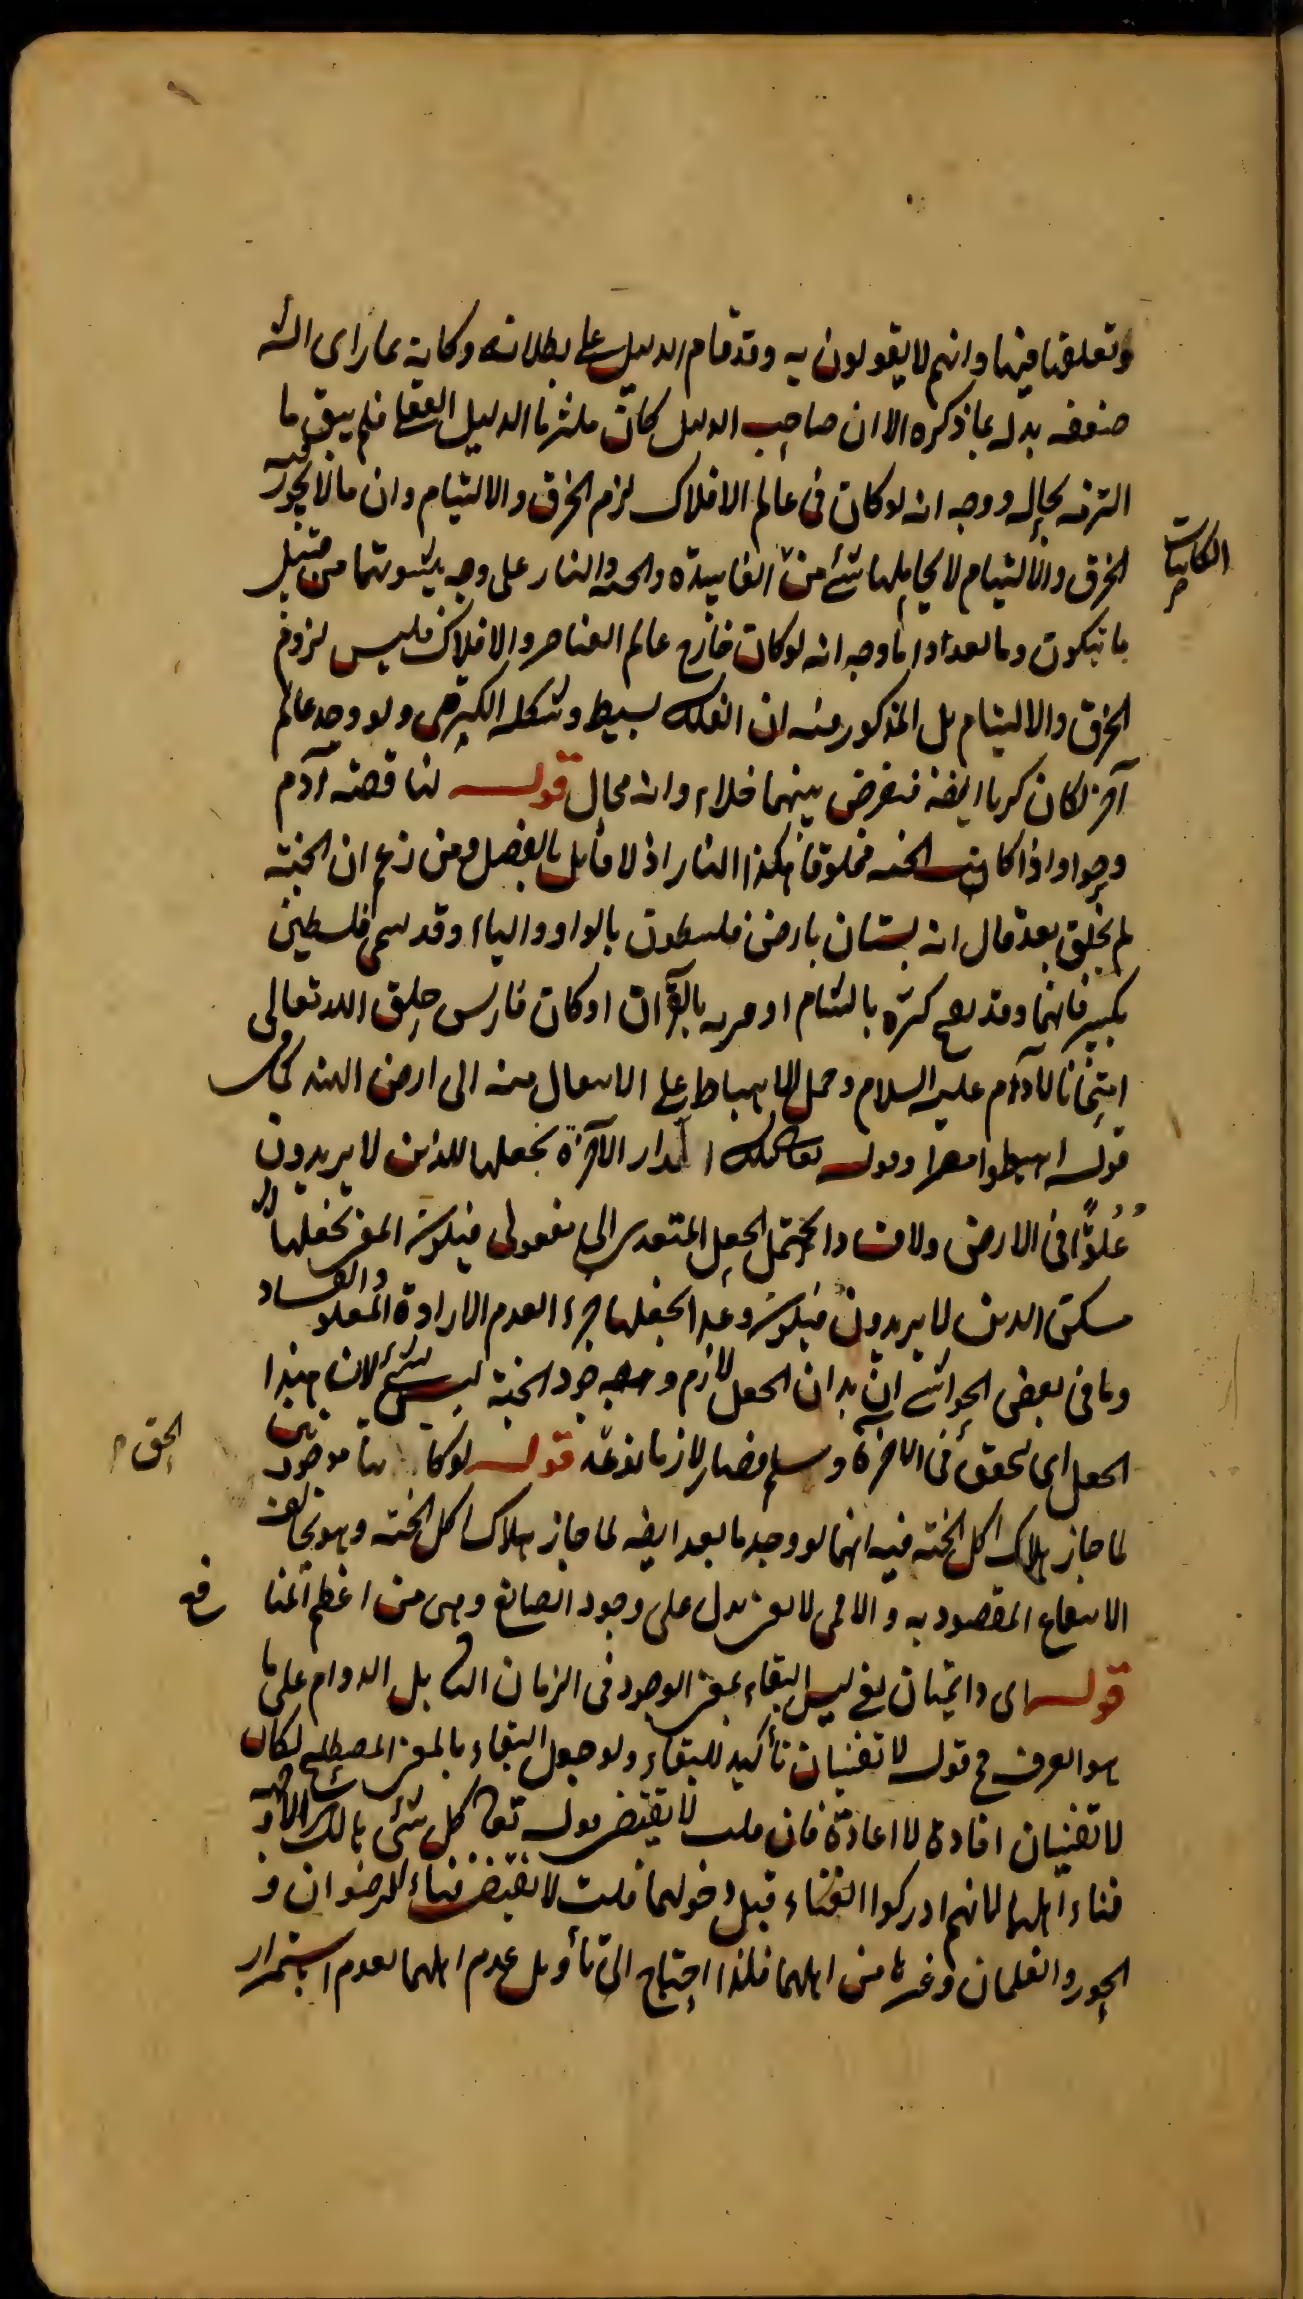 وتعلقها فيها وانهم لا يقولون به وقد قام الدليل على بطلانه وكانه لما راى الش
ضعفه بدله بما ذكره الا ان صاحب الدليل كان ملتزما الدليل فلم يبق ما
التزمه بحاله ووجه انه لو كان فى عالم الافلاك لزم الخرق والالتيام وان ما لا يجوز عليه
الخرق والالتيام لا يخالطها شئ من الفاسدة والجنة والنار على وجه يثبتونهما من قبيل
الكاينات
ما يتكون وما بعد واما وجه انه لو كان خارج عالم العناصر والافلاك فليس لزوم
الخرق والالتيام بل المذكور منه ان الفلك بسيط وشكله الكرى ولو وجد عالم
آخر لكان كريا ايضا فيفرض بينهما خلاء وانه محال قوله لنا قصة آدم
وحوا واذا كانت الجنة مخلوقة فكذا النار اذ لا قايل بالفصل ومن زعم ان الجنة
لم يخلق بعد قال انه بستان بارض فلسطون بالواو والياء وقد سمى فلسطين
بكسر فائهما وقد يفتح كورة بالشام او قرية بالعراق او كان فارس خلق الله تعالى
امتحانا لآدم عليه السلام وحمل الاهباط على الانتقال منه الى ارض الهند كما فى
قوله اهبطوا مصرا وقوله تعا تلك الدار الآخرة نجعلها للذين لا يريدون
علوا فى الارض ولا فسادا يحتمل الجعل المتعدى الى مفعولى فيكون المعنى نجعلها
مسكن الذين لا يريدون فيكون وعدا بجعلها جزاء لعدم الارادة العلو والفساد
وما فى بعض الحواشى ان بدان الجعل لازم وجود الجنة ليس بشئ لان هذا
الجعل اى يتحقق فى الآخرة قوله لو كانتا موجودتين
الحق
لما جاز هلاك اكل الجنة فيه انهما لو وجد ما بعد ايضا لما جاز هلاك اكل الجنة وهو يخالف
الانتفاع المقصود به والا فمى لا يدل على وجود الصانع وهى من اعظم المنا
فع
قوله اى دائمتان يعنى ليس البقاء بمعنى الوجود فى الزمان الثا بل الدوام على ما
هو العرف فح قوله لا تفنيان تأكيد للبقاء ولو جعل البقاء بالمعنى المصطلح لكان
لا تفنيان افادة لا اعادة فان قلت لا يقتضى قوله تعا كل شئ هالك الا وجهه
فناء اهلها لانهم ادركوا الفناء قبل دخولهما قلت لا نقتضى فناء الرضوان و
الحور والغلمان وغيرها من اهلهما فلذا احتاج الى تأويل عدم اهلهما لعدم استمرار